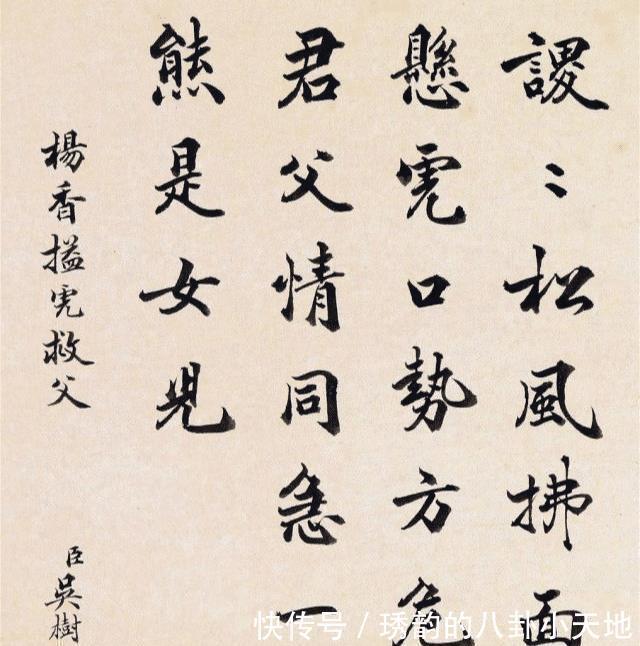 謖〻松風拂面
懸虎口勢方危
君父情同急一
熊是女兒
楊香搤虎救父
臣吳樹
快传号 / 琇韵的八卦小天地